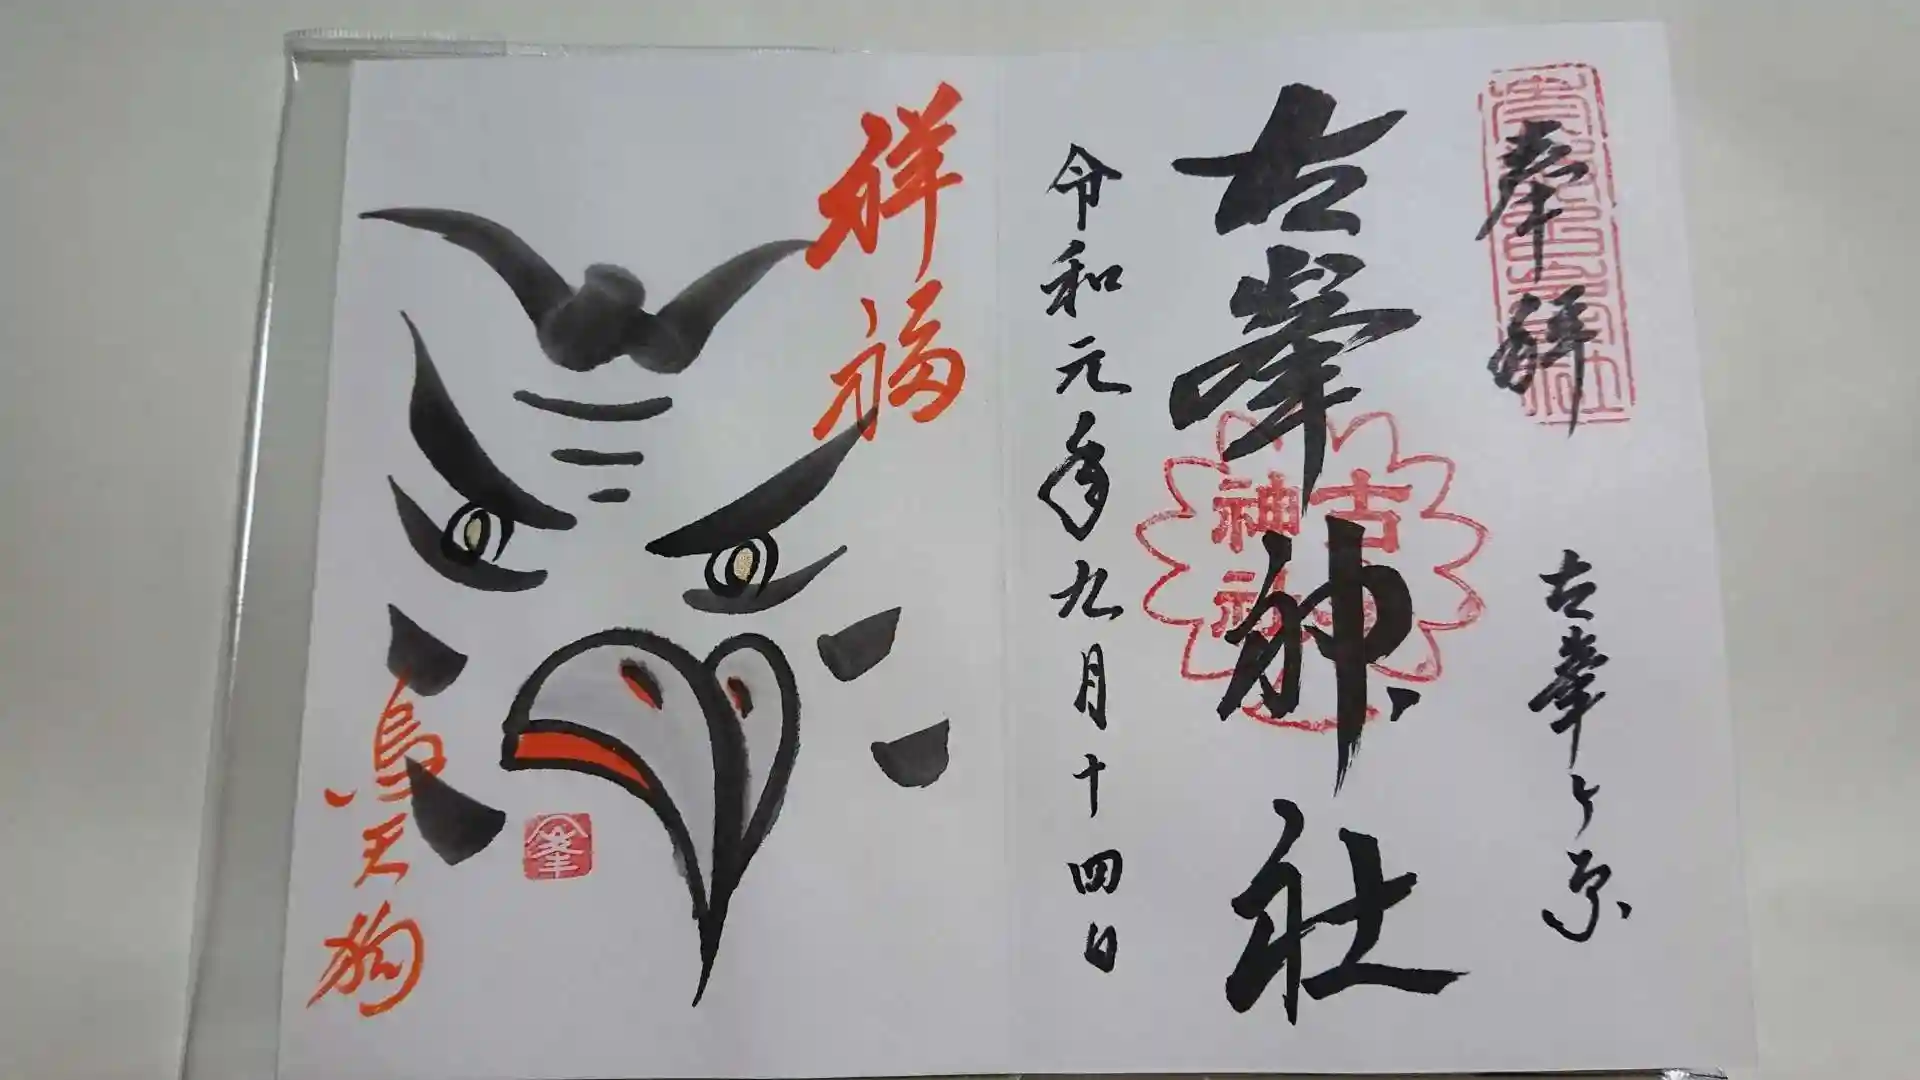 奉拝
古峯ヶ原
古峯神社
古峯
神社
令和元年九月十四日
祥福
烏天狗
峯